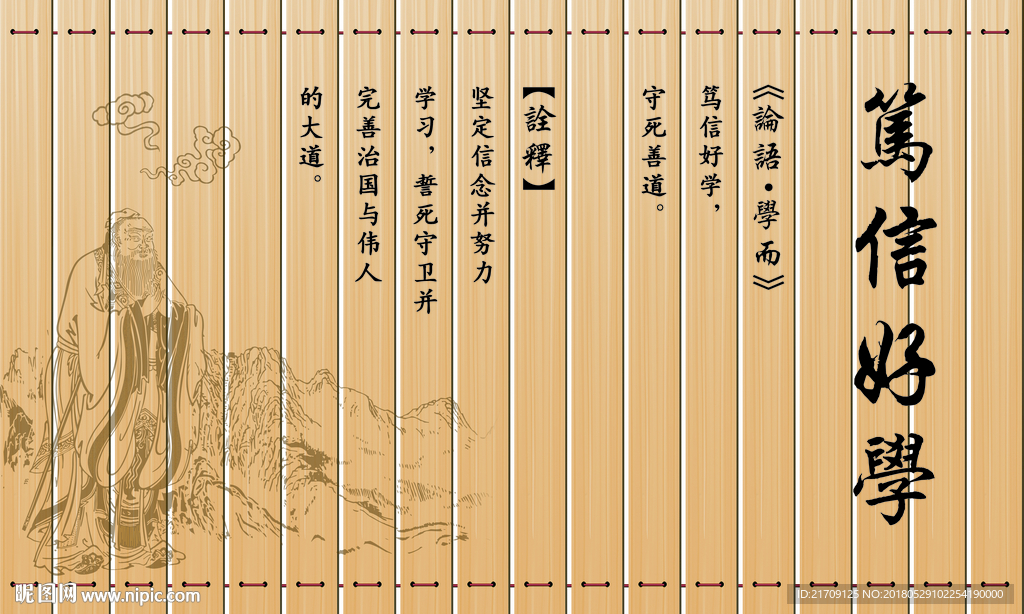 篤信好學
《論語·學而》
笃信好学，
守死善道。
【詮釋】
坚定信念并努力
学习，誓死守卫并
完善治国与伟人
的大道。
昵图网 www.nipic.com
ID:21709125 NO:20180529102254190000